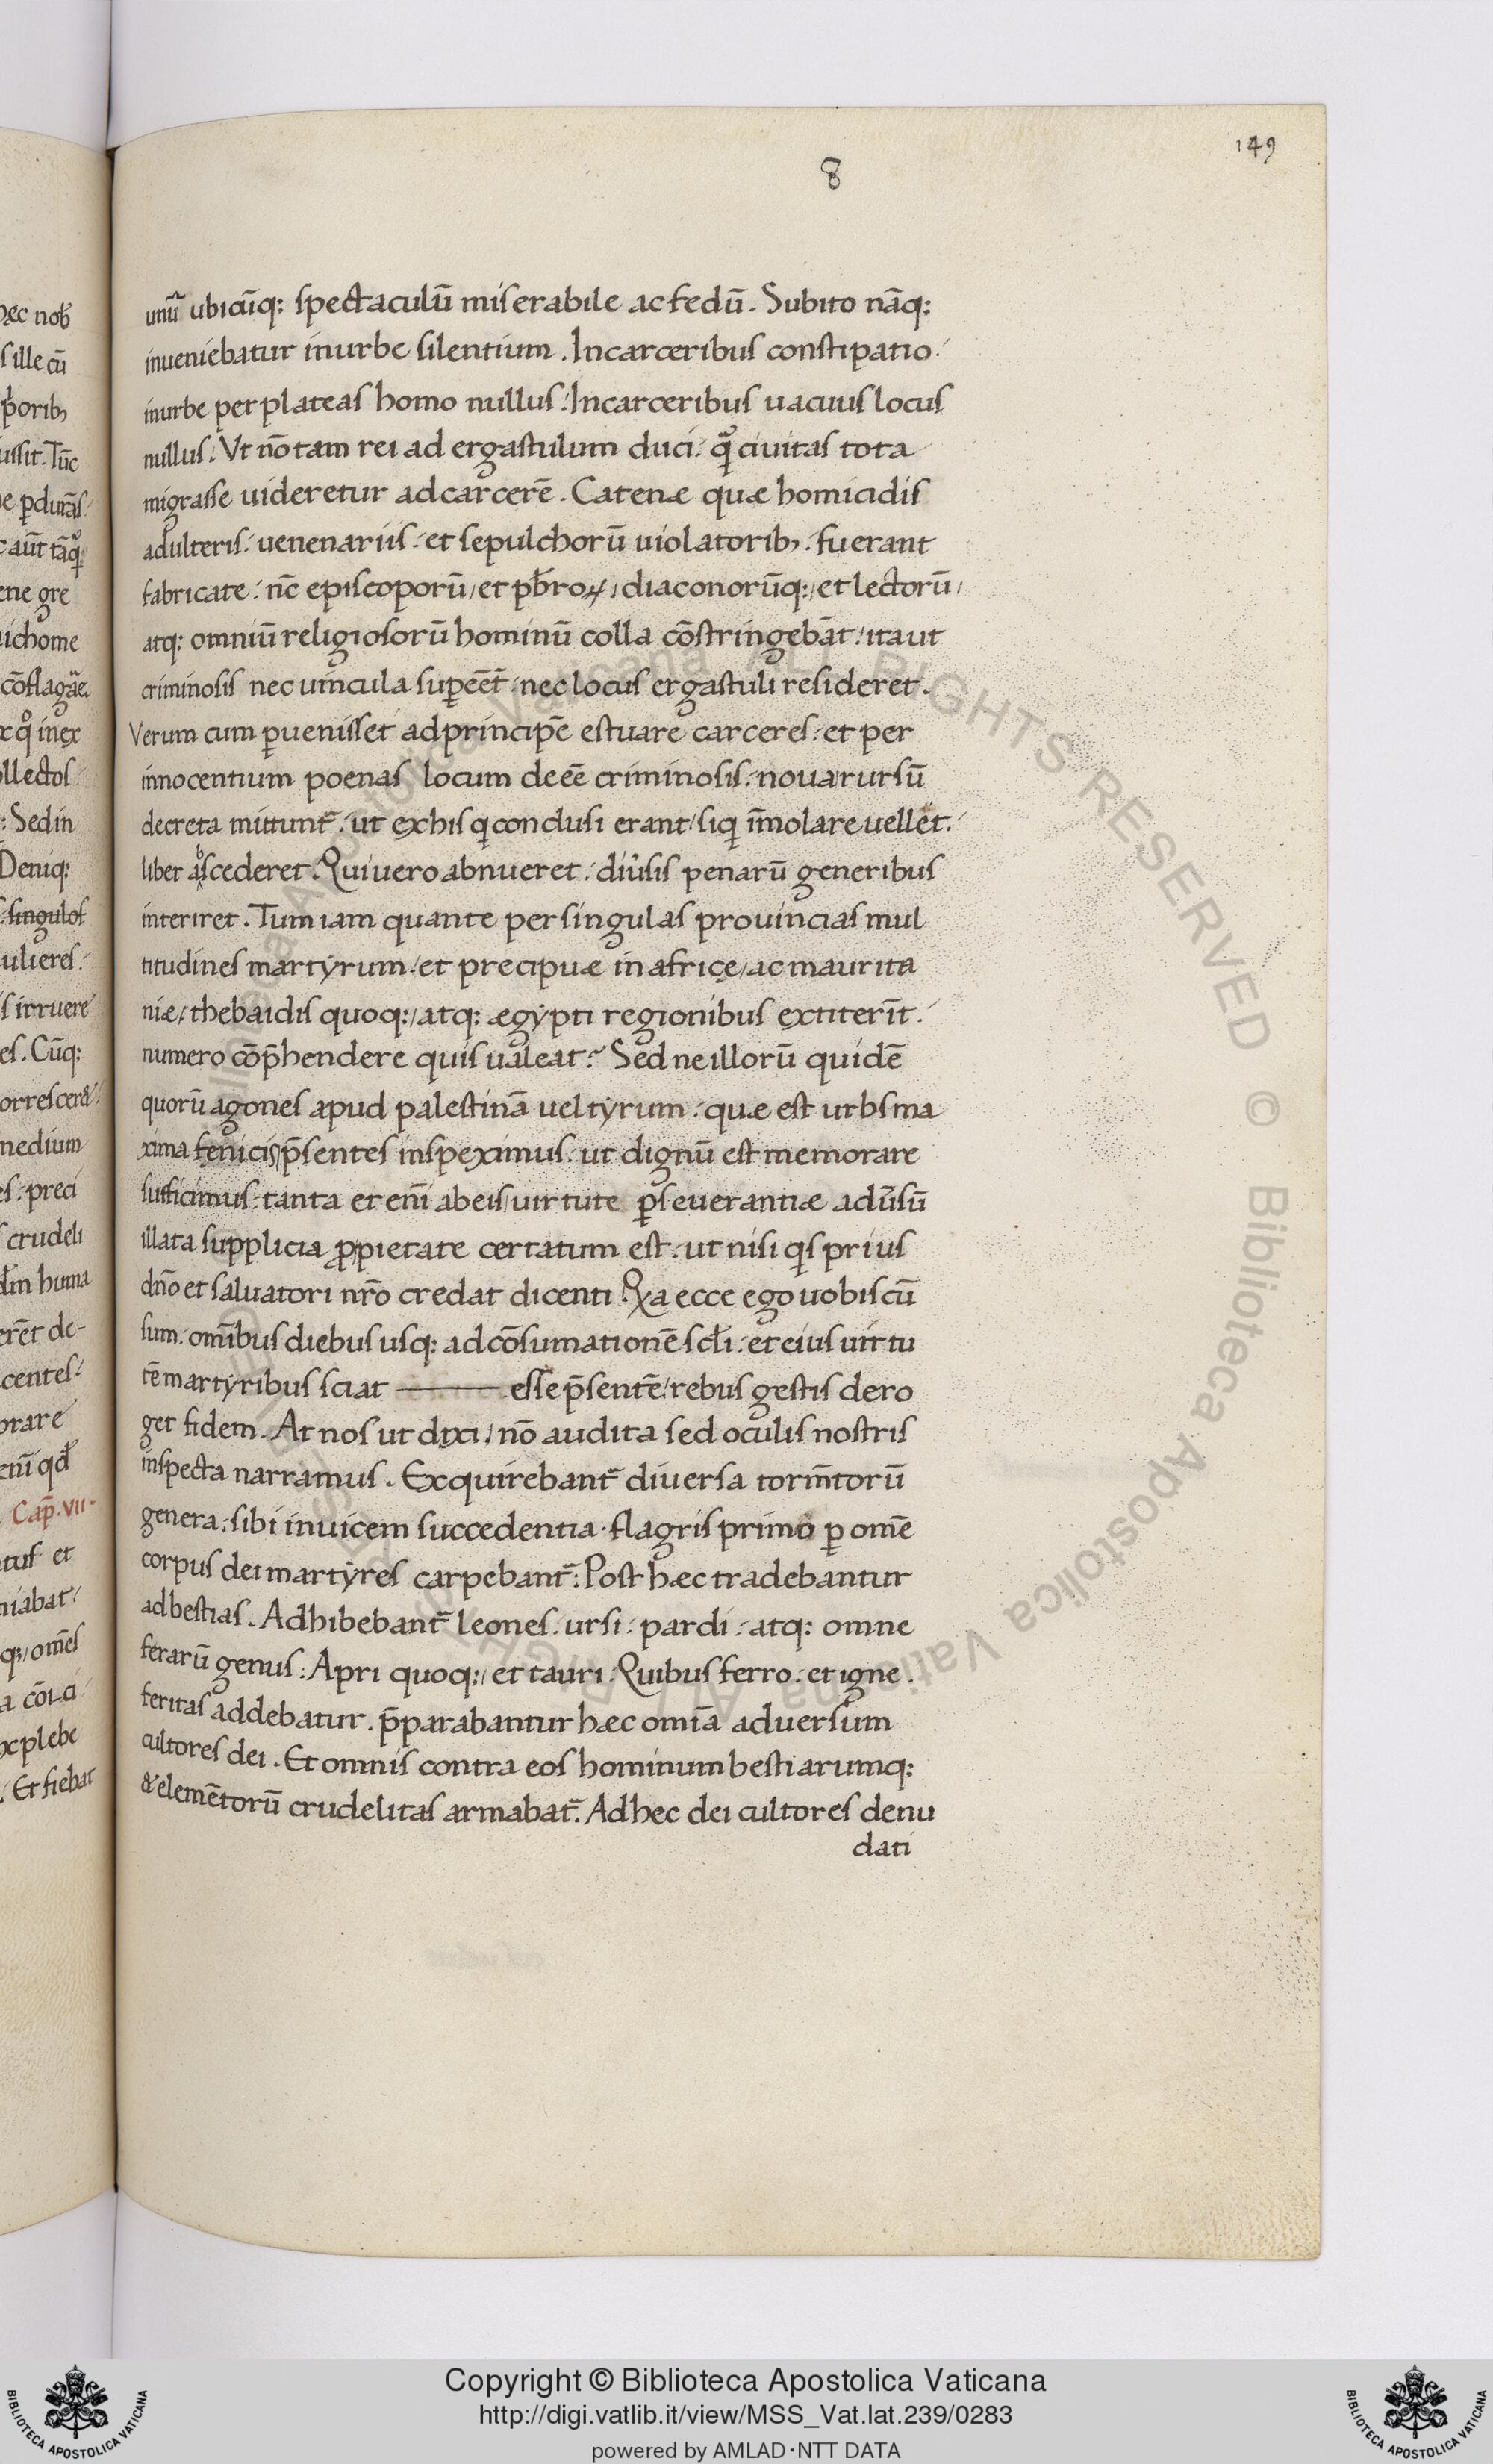 149
8
unũ ubicũq: spectaculũ miserabile ac fedũ. Subito nãq:
inueniebatur inurbe silentium. Incarceribus constipatio.
inurbe per plateas homo nullus. Incarceribus uacuus locus
nullus. Vt nõ tam rei ad ergastulum duci. qͦ ciuitas tota
migrasse uideretur adcarcerẽ. Catenæ quæ homicidis
adulteris. uenenariis. et sepulchorũ uiolatorib;. fuerant
fabricate. nc̃ episcoporũ/ et pb̃roꝝ/ diaconorũq:/ et lectorũ/
atq: omniũ religiosorũ hominũ colla cõstringebãt/ itaut
criminosis nec uincula supeẽt̃. nec locus ergastuli resideret.
Verum cum ꝑuenisset adprincipẽ estuare carceres. et per
innocentium poenas locum deeẽ criminosis. noua rursũ
decreta mittunt̃. ut exhis q̣ conclusi erant/ siq̣ ĩmolare uellẽt.
liber abscederet. Qui uero abnueret. diũsis penarũ generibus
interiret. Tum iam quante per singulas prouincias mul
titudines martyrum/ et precipuæ in africę/ ac maurita
niæ/ thebaidis quoq:/ atq: ægypti regionibus extiterĩt.
numero cõp̃hendere quis ualeat? Sed ne illorũ quidẽ
quorũ agones apud palestinã uel tyrum. quæ est urbs ma
xima fenicis/ p̃sentes inspeximus. ut dignũ est memorare
sufficimus. tanta et enĩ abeis uirtute ꝑseuerantiæ adũsũ
illata supplicia ꝓpietate certatum est. ut nisi q̣s prius
dño et saluatori nr̃o credat dicenti. Qa ecce ego uobiscũ
sum. omĩbus diebus usq: ad cõsumationẽ scl̃i. et eius uirtu
tẽ martyribus sciat ——— esse p̃sentẽ/ rebus gestis dero
get fidem. At nos ut dixi/ nõ audita sed oculis nostris
inspecta narramus. Exquirebant̃ diuersa torm̃torũ
genera. sibi inuicem succedentia. flagris primo ꝑ omẽ
corpus dei martyres carpebant̃. Post hæc tradebantur
ad bestias. Adhibebant̃ leones. ursi. pardi. atq: omne
ferarũ genus. Apri quoq:/ et tauri. Quibus ferro. et igne.
feritas addebatur. p̃parabantur hæc omĩa aduersum
cultores dei. Et omnis contra eos hominum bestiarumq:
& elemẽtorũ crudelitas armabat̃. Ad hec dei cultores denu
dati
Copyright © Biblioteca Apostolica Vaticana
http://digi.vatlib.it/view/MSS_Vat.lat.239/0283
powered by AMLAD·NTT DATA